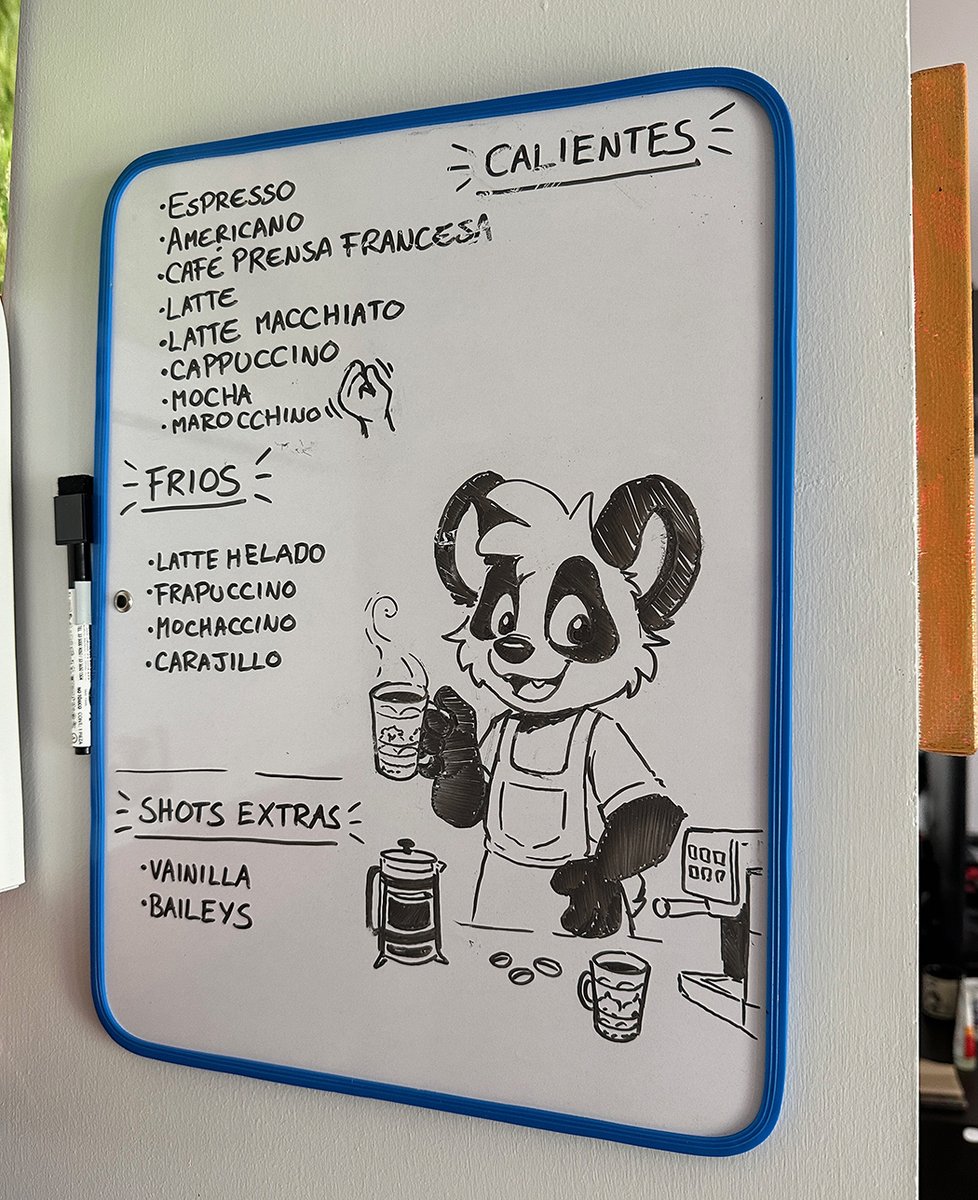 CALIENTES
·ESPRESSO
·AMERICANO
·CAFÉ PRENSA FRANCESA
·LATTE
·LATTE MACCHIATO
·CAPPUCCINO
·MOCHA
·MAROCCHINO
FRIOS
·LATTE HELADO
·FRAPUCCINO
·MOCHACCINO
·CARAJILLO
SHOTS EXTRAS
·VAINILLA
·BAILEYS